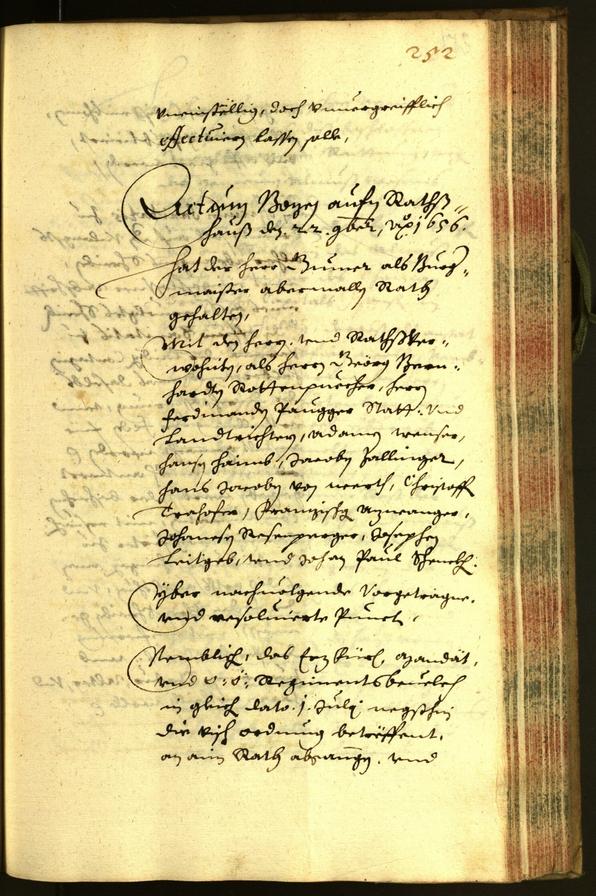 252
uneinstellig, doch unuergreifflich
effectuiern lassen solle,
Actum Bozen aufm Raths-
hauß den 22. 9ber, Ao. 1656.
Hat der herr Zumer als Burg-
maister abermalls Rath
gehalten,
Mit den herrn. und Rathsver-
wohnten, als herrn Georg Bern-
hardten Rottenpuecher, herrn
Ferdinanden Paugger Statt. und
Landtrichtern, Adamen wenser,
hansen haimb, Jacoben Zallinger,
hans Jacoben von neerth, Christoff
Trahofer, Franzischg Azwanger,
Johannesen Rosenperger, Josephen
Leitgeb, und Johan Paul Schenckh.
Yber nachuolgende Vorgetragne.
und resoluierte Punct,
Nemblich, das Erzfürstl. Mandat,
und O: Ö: Regimentsbeuelch
in gleich dato. 1. July negsthin
die vich ordnung betreffent.
an ain Rath abgangen. und